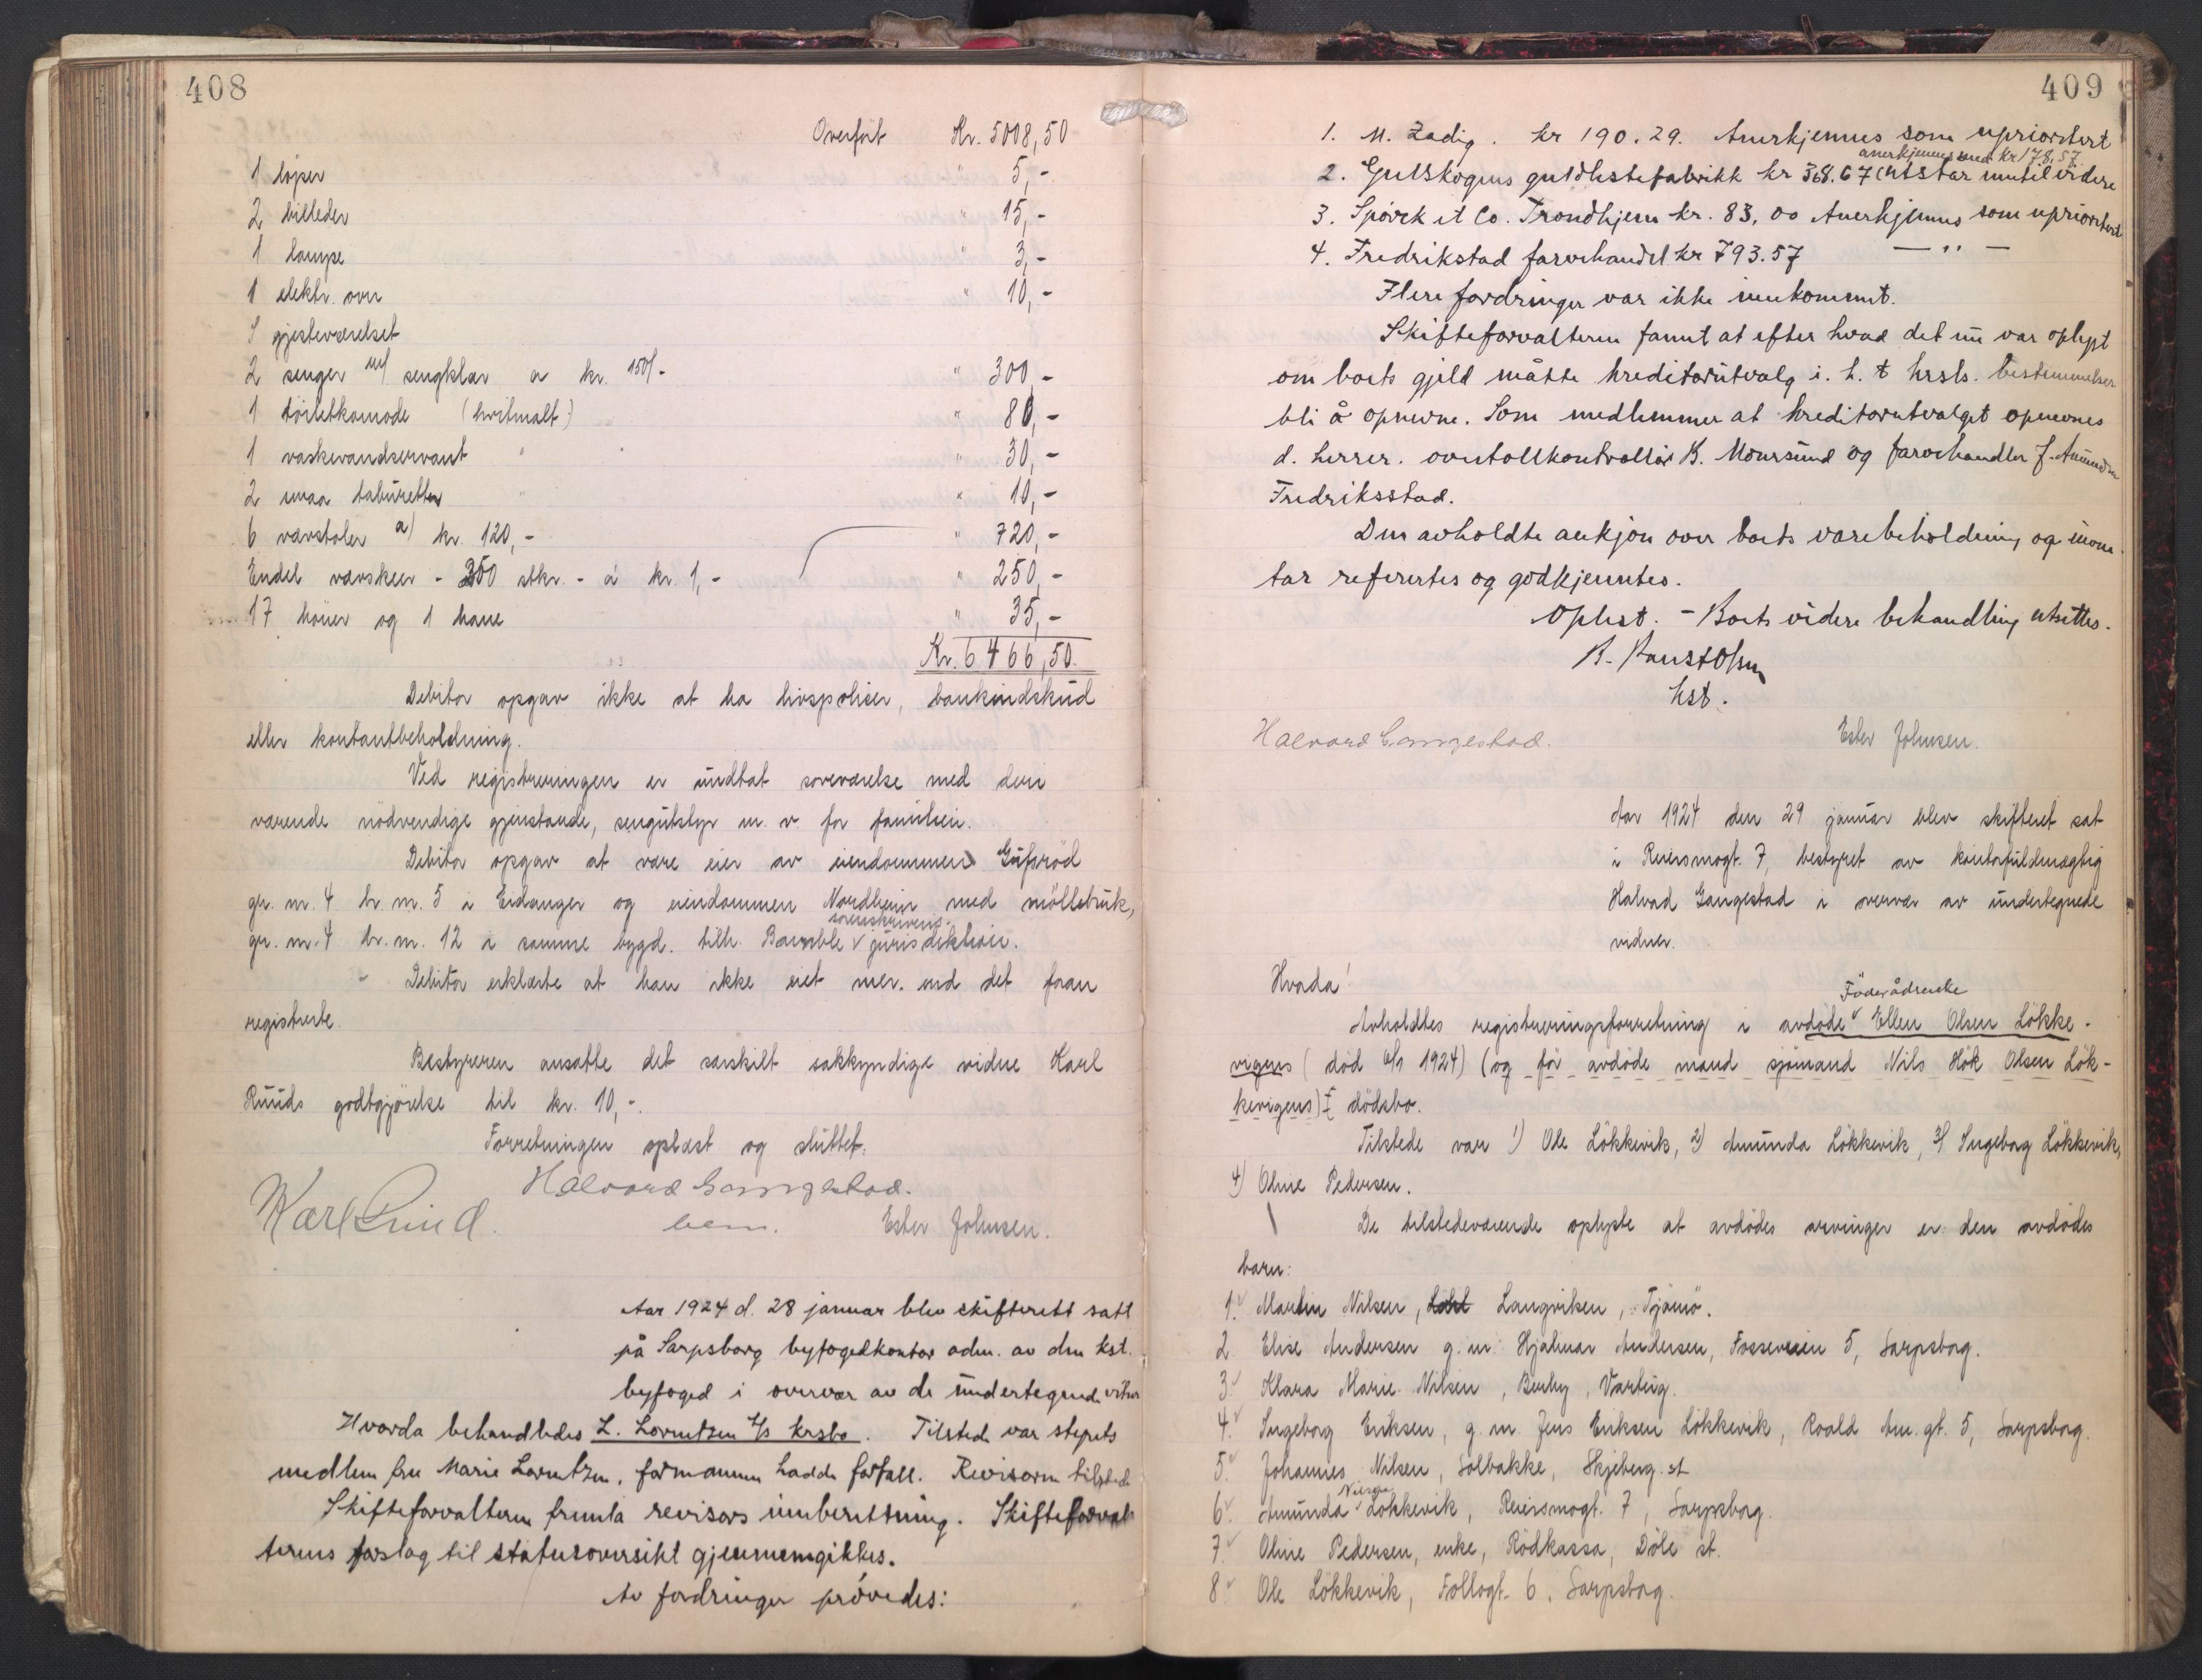 408
Overført Kr. 5008,50
1 löper " 5,-
2 billeder " 15,-
1 lampe " 3,-
1 elektr. ovn " 10,-
I gjesteværelset
2 senger m/ sengklær a kr. 150/- " 300,-
1 toiletkomode (hvitmalt) " 80,-
1 vaskevandservant " " 30,-
2 smaa taburetter " " 10,-
6 vævstoler a) kr. 120,- " 720,-
Endel vævskeer - 250 stkr. - á kr. 1,- " 250,-
17 höner og 1 hane " 35,-
Kr. 6466,50.
Debitor opgav ikke at ha livspoliser, bankindskud
eller kontantbeholdning.
Ved registreringen er undtat soveværelse med deri
værende nödvendige gjenstande, sengutstyr m. v. for familien.
Debitor opgav at være eier av eiendommen Gufsröd
gr. nr. 4 br. nr. 5 i Eidanger og eiendommen Nordheim med möllebruk,
sorenskriveri-
gr. nr. 4 br. nr. 12 i samme bygd. tilh. Bamble v jurisdektion.
Debitor erklærte at han ikke eiet mer. end det foran
registrerte.
Bestyreren ansatte det særskilt sakkyndige vidne Karl
Ruuds godtgjörelse til kr. 10,-.
Forretningen oplæst og sluttet.
Halvord Gangestad.
Karl Ruud. bem. Ester Johnsen.
Aar 1924 d. 28 januar blev skifterett satt
på Sarpsborg byfogedkontor adm. av den kst.
byfoged i overvær av de undertegnede vitner
Hvorda behandledes L. Lorentzen A/S krsbo. Tilstede var styrets
medlem fru Marie Lorentzen, formannen hadde forfall. Revisoren tilstede
Skifteforvalteren fremla revisors innberetning. Skifteforval-
terens forslag til statusoversikt gjennemgikkes.
Av fordringer prövedes:
409
1. M. Zadig. kr 190.29. Anerkjennes som uprioritert
anerkjennes med kr 178.57.
2. Gulskogens guldlistefabrikk kr 368.67 (utstår inntil videre
3. Spörck et Co. Trondhjem kr. 83,00 Anerkjennes som uprioritert
4. Fredrikstad farvehandel kr 793.57 — " —
Flere fordringer var ikke innkommet.
Skifteforvalteren fannt at efter hvad det nu var oplyst
om boets gjeld måtte kreditorutvalg i. h. t krsls. bestemmelser
bli å opnevne. Som medlemmer at kreditorutvalget opnevnes
d. herrer. overtollkontrollör K. Moursund og farvehandler J. Amundsen
Fredriksstad.
Den avholdte auksjon over boets varebeholdning og inven-
tar refererte og godkjenntes.
Oplest. - Boets videre behandling utsettes.
kst.
Halvord Gangestad. Ester Johnsen.
Aar 1924 den 29 januar blev skifteret sat
i Reiersmogt. 7, bestyret av kontorfuldmægtig
Halvord Gangestad i overvær av undertegnede
vidner.
Hvorda!
Föderådsenke
Avholdtes registreringsforretning i avdöde v Ellen Olsen Lökke-
vigens (död 6/1 1924) (og för avdöde mand sjömand Nils Hök Olsen Lök-
kevigens) dödsbo.
Tilstede var 1) Ole Lökkevik, 2) Amunda Lökkevik, 3) Ingeborg Lökkevik,
4) Oline Pedersen.
De tilstedeværende oplyste at avdödes arvinger er den avdödes
barn:
1. Martin Nilsen, Langviken, Tjömö.
2. Elise Andersen g. m. Hjalmar Andersen, Fosseveien 5, Sarpsborg.
3. Klara Marie Nilsen, Berby, Varteig.
4. Ingeborg Eriksen, g. m. Jens Eriksen Lökkevik, Roald Am. gt. 5, Sarpsborg.
5. Johannes Nilsen, Solbakke, Skjeberg. st
Nilsen
6. Amunda v Lökkevik, Reiersmogt. 7, Sarpsborg.
7. Oline Pedersen, enke, Rödkassa, Döle st.
8. Ole Lökkevik, Follogt. 6, Sarpsborg.